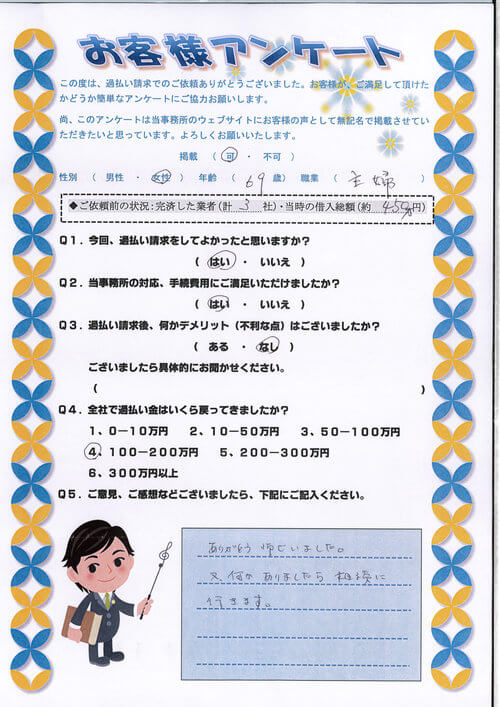 お客様アンケート
この度は、過払い請求でのご依頼ありがとうございました。お客様が、ご満足して頂けた
かどうか簡単なアンケートにご協力お願いします。
尚、このアンケートは当事務所のウェブサイトにお客様の声として無記名で掲載させてい
ただきたいと思っています。よろしくお願いいたします。
掲載 ( 可 ・ 不可 )
性別 ( 男性 ・ 女性 ) 年齢 ( 69 歳) 職業 ( 主婦 )
◆ご依頼前の状況：完済した業者(計 3 社)・当時の借入総額(約 450万円)
Q1．今回、過払い請求をしてよかったと思いますか？
( はい ・ いいえ )
Q2．当事務所の対応、手続費用にご満足いただけましたか？
( はい ・ いいえ )
Q3．過払い請求後、何かデメリット（不利な点）はございましたか？
( ある ・ なし )
ございましたら具体的にお聞かせください。
( )
Q4．全社で過払い金はいくら戻ってきましたか？
1、0－10万円 2、10－50万円 3、50－100万円
4、100－200万円 5、200－300万円
6、300万円以上
Q5．ご意見、ご感想などございましたら、下記にご記入ください。
ありがとう ございました。
又、何か ありましたら 相談に
行きます。